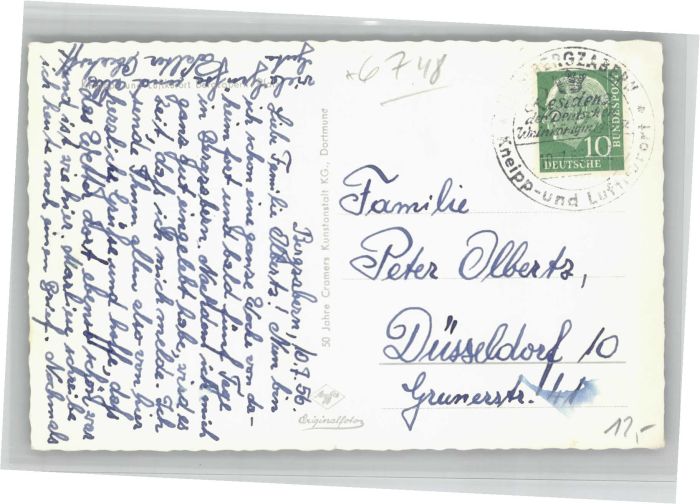 6748
BERGZABERN
Residenz
der Deutschen
Kneipp- und Luftkurort
DEUTSCHE BUNDESPOST
10
Familie
Peter Olbertz,
Düsseldorf 10
Grunerstr. 41
12,-
50 Jahre Cramers Kunstanstalt KG., Dortmund
Agfa
Originalfoto
Bergzabern, 10.7.56.
Liebe Familie Olbertz! Nun bin
ich schon eine ganze Woche von da-
heim fort und bald fünf Tage
in Bergzabern. Nachdem ich mich
ganz gut eingelebt habe, wird es
Zeit, daß ich mich melde. Ich
sende Ihnen allen also von hier
herzliche Grüße und hoffe, daß
das Wetter dort ebenso schön war
und ist wie hier.
ich heute noch einen Brief. Nochmals
viele